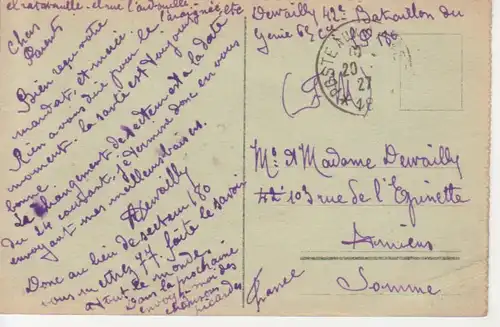 et ratatouille. et rue l'andouille.
l'araignée, etc
Chers
Parents
Bien reçu votre
mandat, et merci.
Rien à vous dire pour le
moment. la santé est toujours
bonne.
Le changement de secteur a la date
du 24 courant. je termine donc en vous
envoyant mes meilleurs baisers.
Dewailly
Donc au lieu de secteur 180
vous mettrez 77. faite le savoir
a tout le monde.
Dans la prochaine
envoyez moi des
chansons
picardes
Dewailly 42e Bataillon du
Genie
SP 180
POSTE AUX
20
27
Mr & Madame Dewailly
103 rue de l'Epinette
Amiens
Somme
France